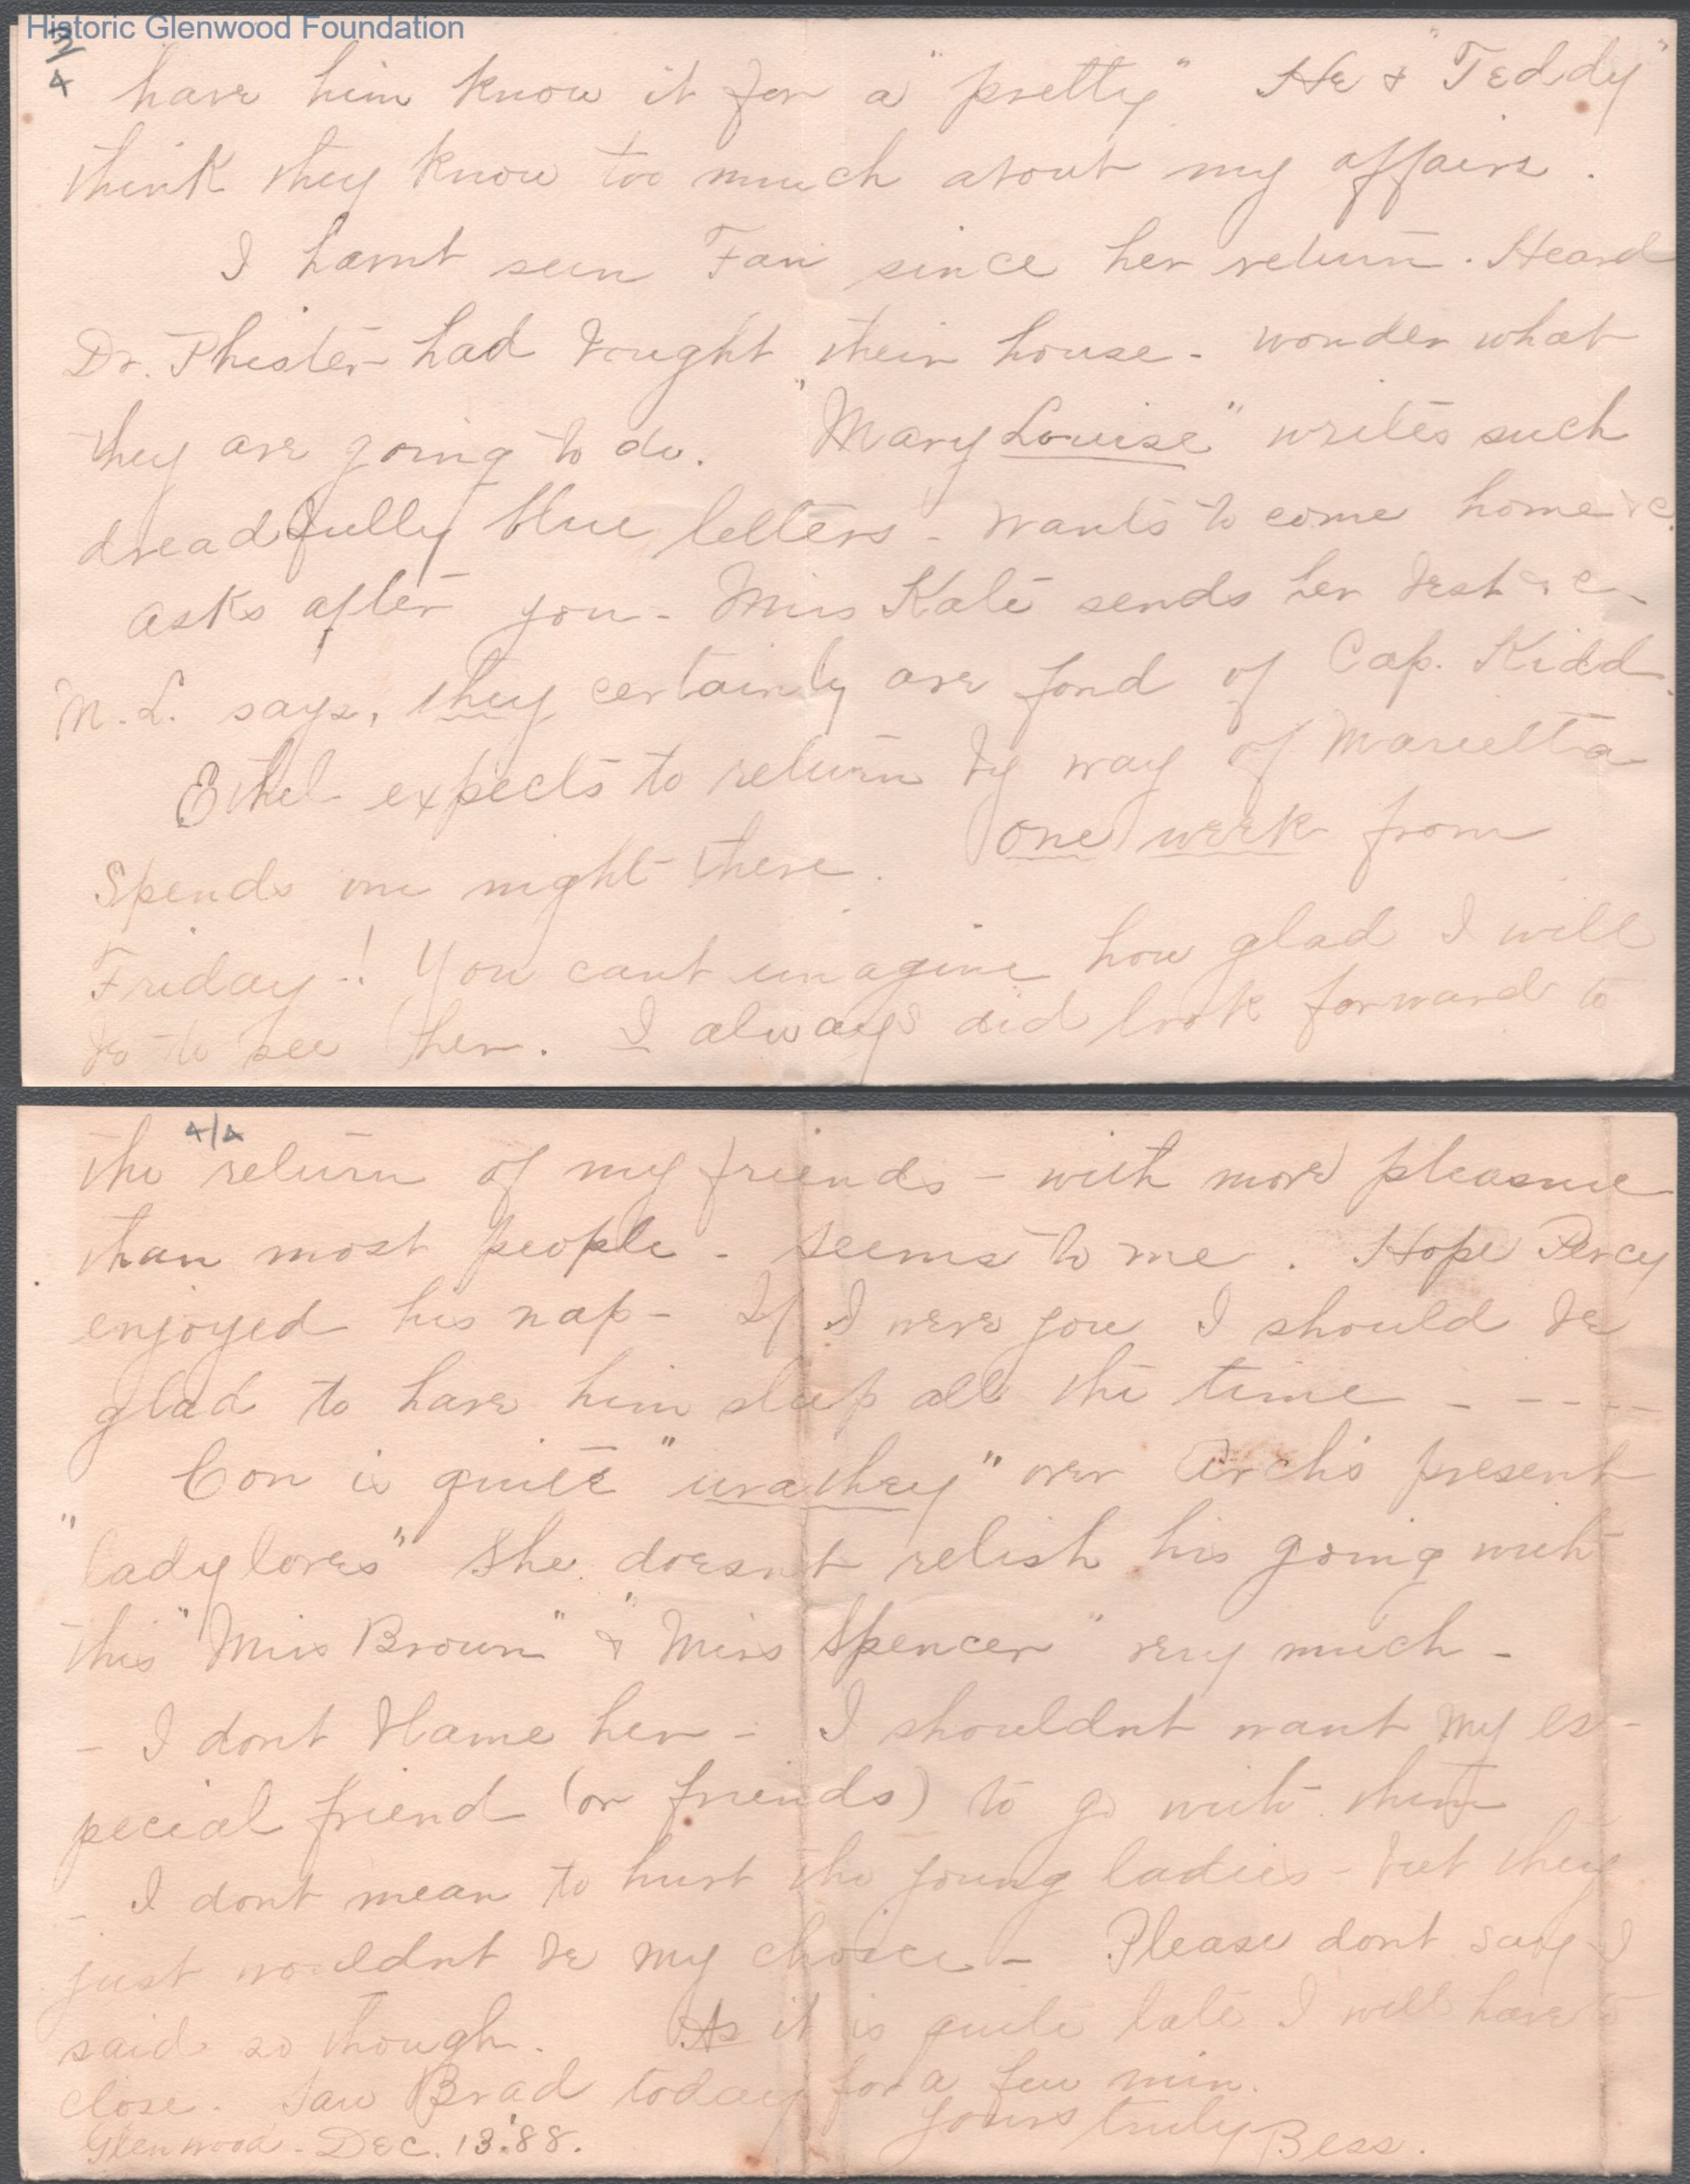 Historic Glenwood Foundation
3/4
have him know it for a "pretty" He & "Teddy"
think they know too much about my affairs.
I havnt seen Fan since her return. Heard
Dr. Phister had bought their house - wonder what
they are going to do. "Mary Louise" writes such
dreadfully blue letters - wants to come home &c.
asks after you - Miss Kate sends her best &c -
M. L. says, they certainly are fond of Cap. Kidd.
Ethel expects to return by way of Marietta
Spends one night there. one week from
Friday -! You cant imagine how glad I will
be to see her. I always did look forward to
4/4
the return of my friends - with more pleasure
than most people - seems to me. Hope Percy
enjoyed his nap - If I were you I should be
glad to have him sleep all the time - - - - -
Con is quite "wrathey" over Arch's present
"lady loves" She doesn't relish his going with
this "Miss Brown" & "Miss Spencer" very much -
- I dont blame her - I shouldnt want my es-
pecial friend (or friends) to go with them
- I dont mean to hurt the young ladies - but they
just wouldnt be my choice - Please dont say I
said so though. As it is quite late I will have to
close. Saw Brad today for a few min.
Yours truly Bess.
Glenwood - Dec. 13. '88.